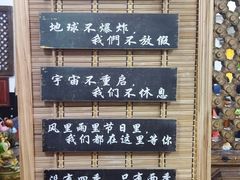 地球不爆炸，
我們不放假
宇宙不重启，
我们不休息
风里雨里节日里，
我们都在这里等你
没有四季，只有两季